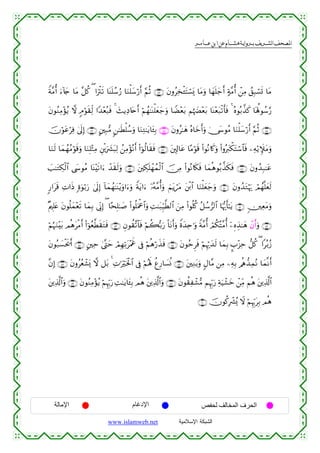 المصحف الشريف برواية هشام عن ابن عامر
مَا تَسْبِقُ مِنْ أُمَّةٍ أَجَلَهَا وَمَا يَسْتَـْٔخِرُونَ ۝ ثُمَّ أَرْسَلْنَا رُسُلَنَا تَتْرَا ۖ كُلَّ مَا جَآءَ أُمَّةً
رَّسُولُهَا كَذَّبُوهُ ۚ فَأَتْبَعْنَا بَعْضَهُم بَعْضًا وَجَعَلْنَٰهُمْ أَحَادِيثَ ۚ فَبُعْدًا لِّقَوْمٍ لَّا يُؤْمِنُونَ
۝ ثُمَّ أَرْسَلْنَا مُوسَىٰ وَأَخَاهُ هَٰرُونَ ۝ بِـَٔايَٰتِنَا وَسُلْطَٰنٍ مُّبِينٍ ۝ إِلَىٰ فِرْعَوْنَ
وَمَلَإِيْهِۦ فَٱسْتَكْبَرُوا۟ وَكَانُوا۟ قَوْمًا عَالِينَ ۝ فَقَالُوٓا۟ أَنُؤْمِنُ لِبَشَرَيْنِ مِثْلِنَا وَقَوْمُهُمَا لَنَا
عَٰبِدُونَ ۝ فَكَذَّبُوهُمَا فَكَانُوا۟ مِنَ ٱلْمُهْلَكِينَ ۝ وَلَقَدْ ءَاتَيْنَا مُوسَى ٱلْكِتَٰبَ
لَعَلَّهُمْ يَهْتَدُونَ ۝ وَجَعَلْنَا ٱبْنَ مَرْيَمَ وَأُمَّهُۥٓ ءَايَةً وَءَاوَيْنَٰهُمَآ إِلَىٰ رَبْوَةٍ ذَاتِ قَرَارٍ
وَمَعِينٍ ۝ يَٰٓأَيُّهَا ٱلرُّسُلُ كُلُوا۟ مِنَ ٱلطَّيِّبَٰتِ وَٱعْمَلُوا۟ صَٰلِحًا ۖ إِنِّى بِمَا تَعْمَلُونَ عَلِيمٌ
۝ وَأَنْ هَٰذِهِۦٓ أُمَّتُكُمْ أُمَّةً وَٰحِدَةً وَأَنَا۠ رَبُّكُمْ فَٱتَّقُونِ ۝ فَتَقَطَّعُوٓا۟ أَمْرَهُم بَيْنَهُمْ
زُبُرًا ۖ كُلُّ حِزْبٍۭ بِمَا لَدَيْهِمْ فَرِحُونَ ۝ فَذَرْهُمْ فِى غَمْرَتِهِمْ حَتَّىٰ حِينٍ ۝ أَيَحْسَبُونَ
أَنَّمَا نُمِدُّهُم بِهِۦ مِن مَّالٍ وَبَنِينَ ۝ نُسَارِعُ لَهُمْ فِى ٱلْخَيْرَٰتِ ۚ بَل لَّا يَشْعُرُونَ ۝ إِنَّ
ٱلَّذِينَ هُم مِّنْ خَشْيَةِ رَبِّهِم مُّشْفِقُونَ ۝ وَٱلَّذِينَ هُم بِـَٔايَٰتِ رَبِّهِمْ يُؤْمِنُونَ ۝ وَٱلَّذِينَ
هُم بِرَبِّهِمْ لَا يُشْرِكُونَ ۝
الحرف المخالف لحفص الإدغام الإمالة
الشبكة الإسلامية www.islamweb.net